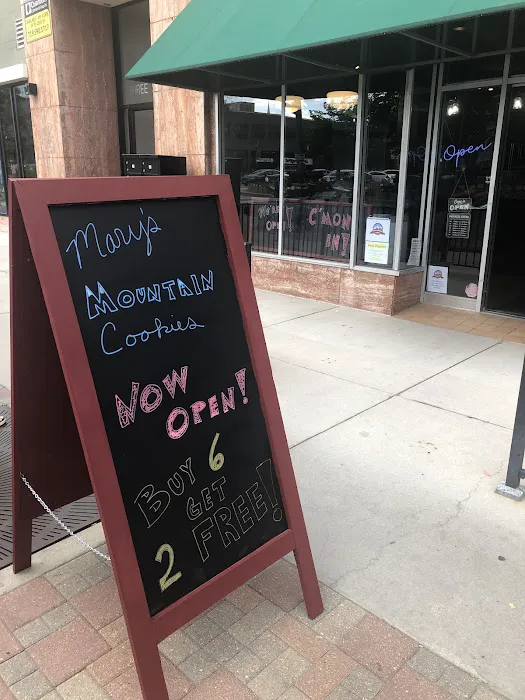 Mary's
MOUNTAIN
Cookies
NOW
OPEN!
BUY 6
GET
2 FREE!
Open
OPEN
C'MON
IN!